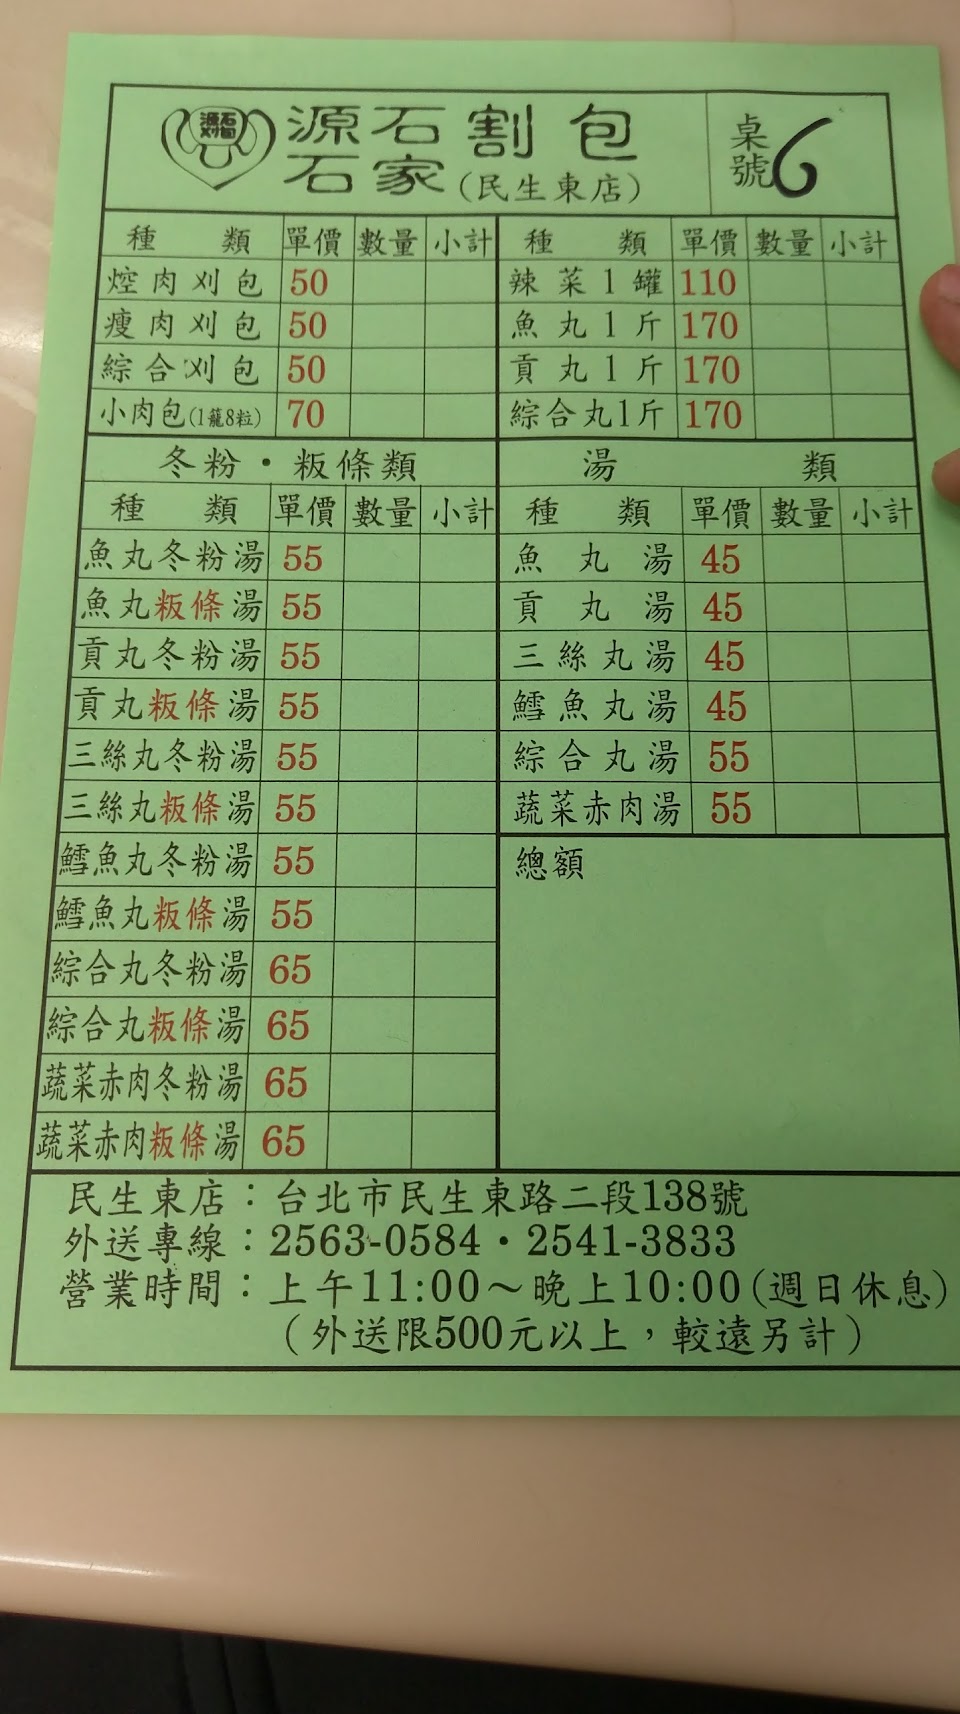 源石割包
石家(民生東店)
桌號6
種類 單價 數量 小計
焢肉刈包 50
瘦肉刈包 50
綜合刈包 50
小肉包(1蘢8粒) 70
種類 單價 數量 小計
辣菜1罐 110
魚丸1斤 170
貢丸1斤 170
綜合丸1斤 170
冬粉・粄條類
種類 單價 數量 小計
魚丸冬粉湯 55
魚丸粄條湯 55
貢丸冬粉湯 55
貢丸粄條湯 55
三絲丸冬粉湯 55
三絲丸粄條湯 55
鱈魚丸冬粉湯 55
鱈魚丸粄條湯 55
綜合丸冬粉湯 65
綜合丸粄條湯 65
蔬菜赤肉冬粉湯 65
蔬菜赤肉粄條湯 65
湯類
種類 單價 數量 小計
魚丸湯 45
貢丸湯 45
三絲丸湯 45
鱈魚丸湯 45
綜合丸湯 55
蔬菜赤肉湯 55
總額
民生東店：台北市民生東路二段138號
外送專線：2563-0584・2541-3833
營業時間：上午11:00～晚上10:00(週日休息)
(外送限500元以上，較遠另計)